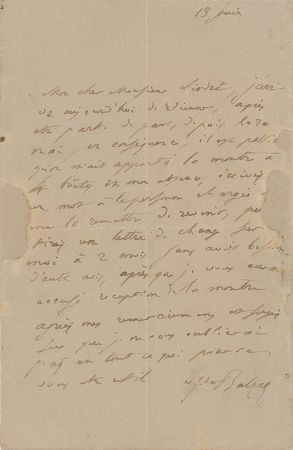 13 juin
Mon cher Monsieur Liodet, j'arri-
ve aujourd'hui de Vienne, après
être parti de paris, depuis le 20
mai, en conséquence, il est possible
qu'on m'ait apporté la montre à
en mon absence, écrivez
un mot à la personne chargée de
me la remettre de revenir, puis
tirez une lettre de change sur
moi à 2 mois sans avoir besoin
d'autre avis, après que je vous aurai
accusé réception de la montre
agréez mes remerciemens et soyez
sûr que je ne vous oublierai
pas en tout ce qui pourra
vous être utile
de Balzac